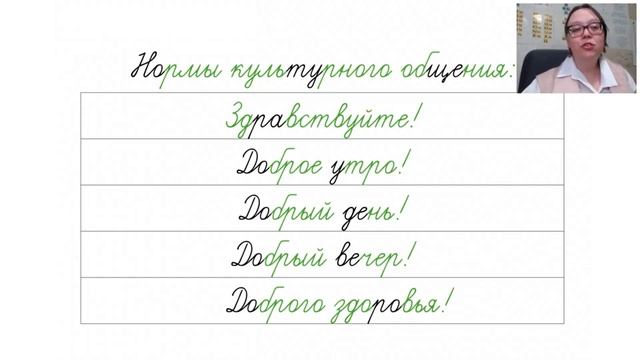 Нормы культурного общения:
Здравствуйте!
Доброе утро!
Добрый день!
Добрый вечер!
Доброго здоровья!